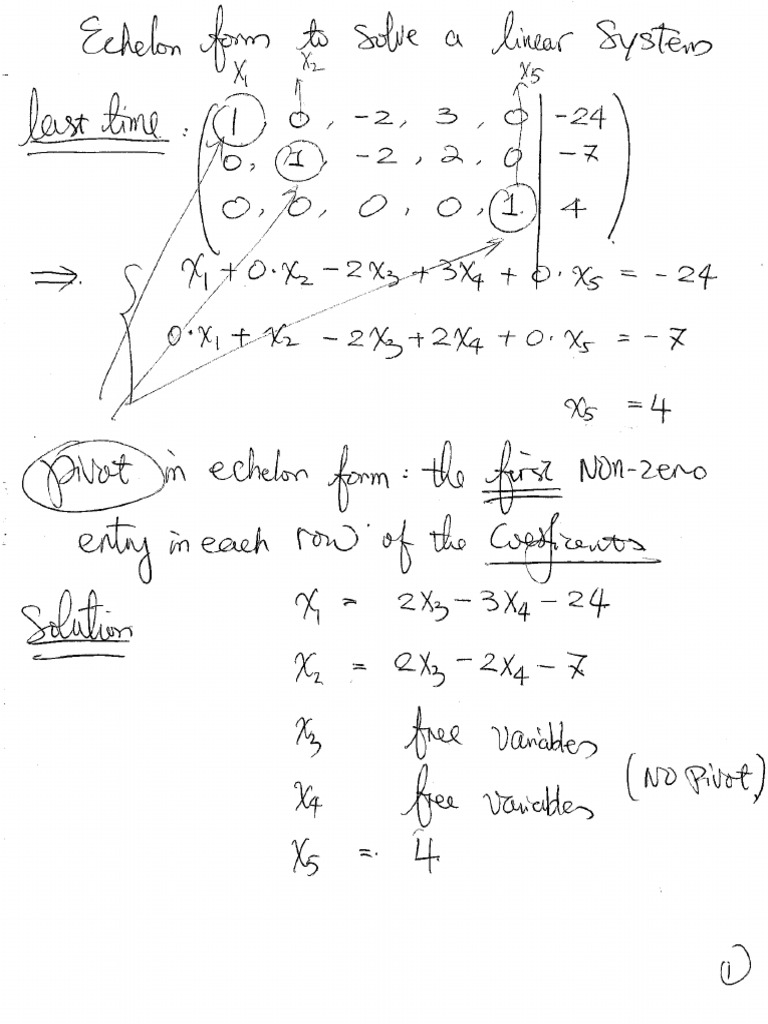 Echelon form to solve a linear System
X₁ X₂ X₅
last time : ( 1, 0, -2, 3, 0 | -24 )
0, 1, -2, 2, 0 | -7
0, 0, 0, 0, 1 | 4
⟹ { X₁ + 0·X₂ - 2X₃ + 3X₄ + 0·X₅ = -24
0·X₁ + X₂ - 2X₃ + 2X₄ + 0·X₅ = -7
X₅ = 4
pivot in echelon form : the first Non-zero
entry in each row of the Coefficients
Solution
X₁ = 2X₃ - 3X₄ - 24
X₂ = 2X₃ - 2X₄ - 7
X₃ free variables
X₄ free variables (NO Pivot)
X₅ = 4
1